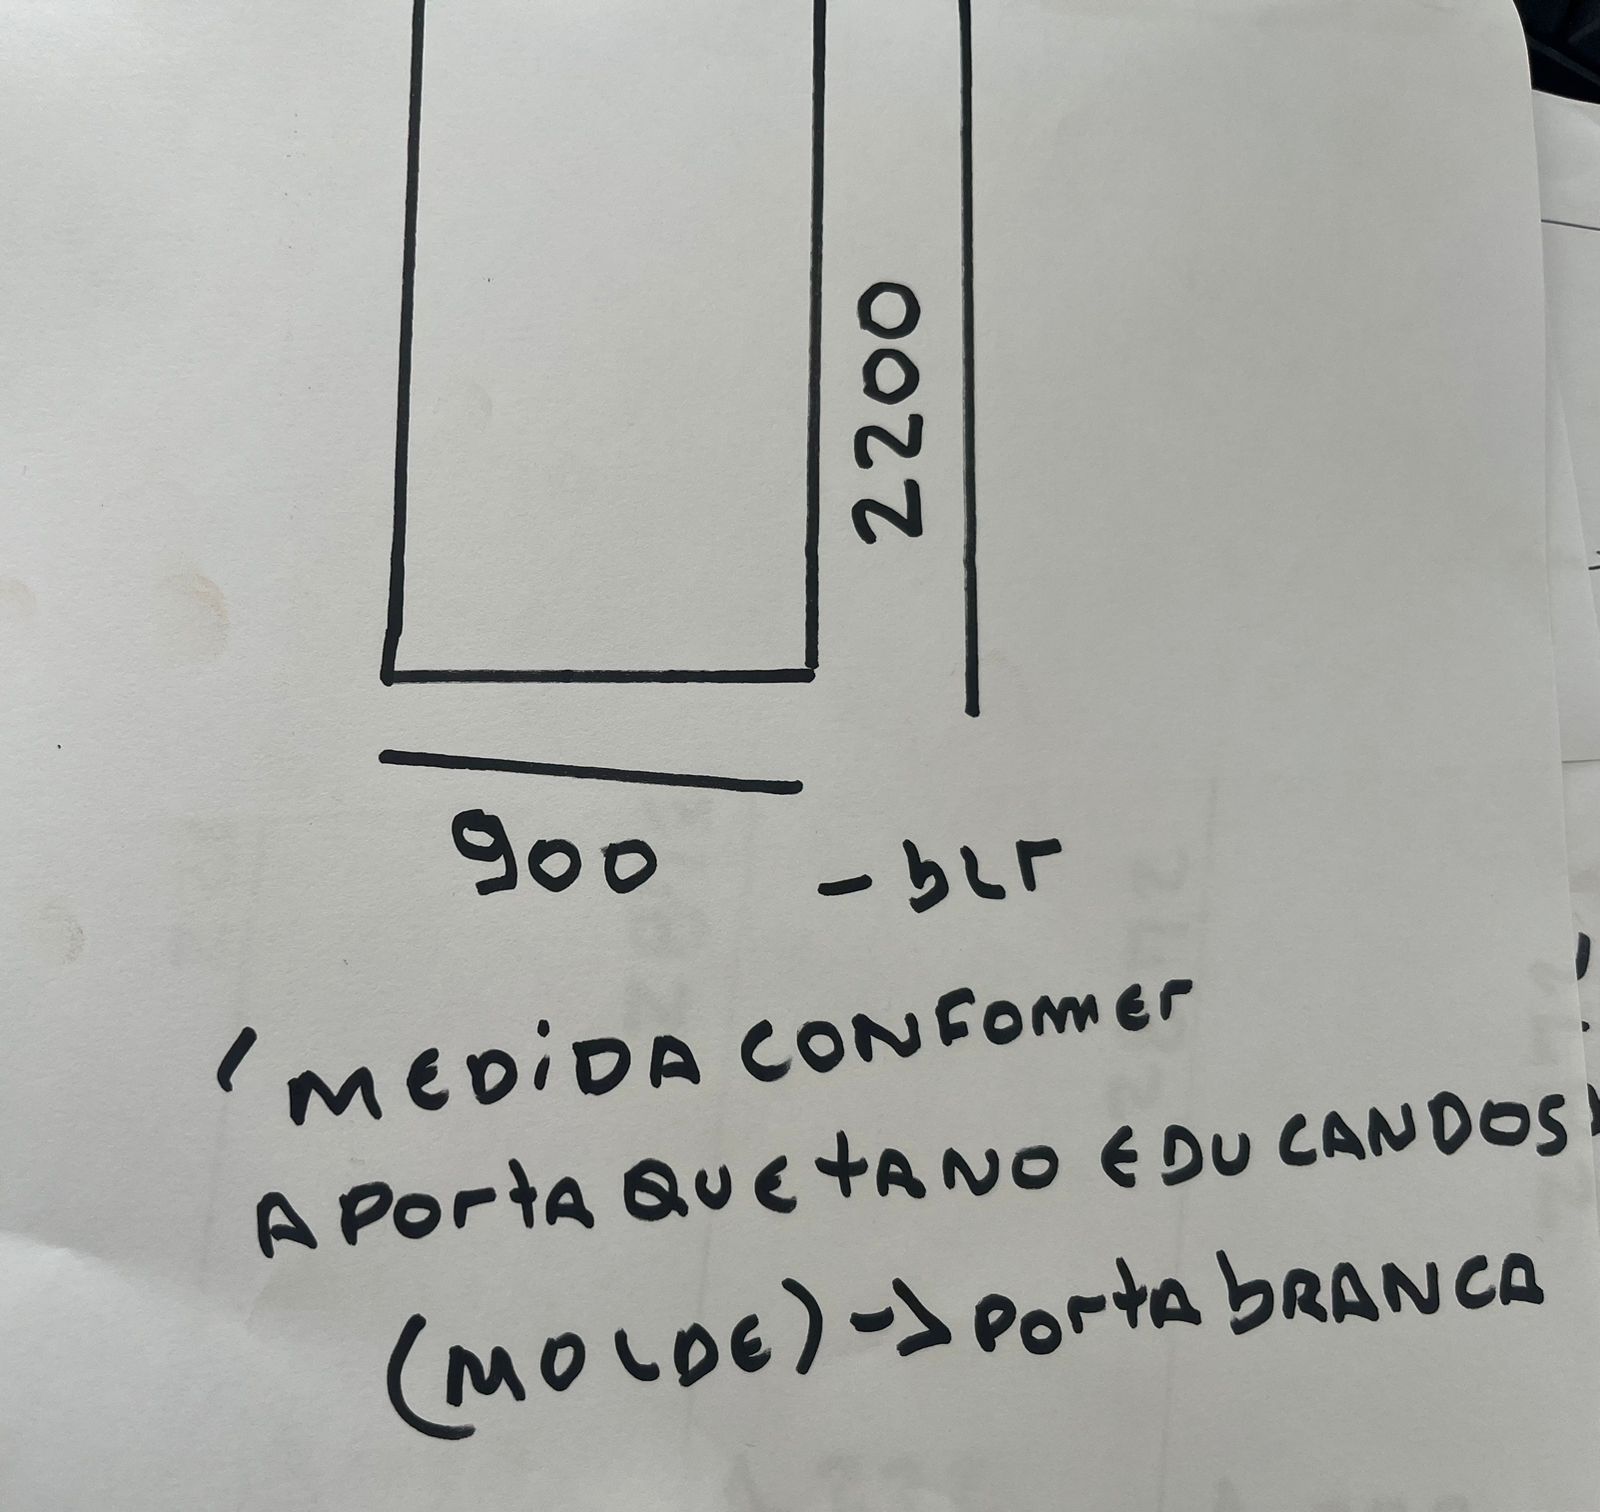 2200
900 - bLT
'MEDIDA CONFOMER
A PORTA QUE TA NO EDUCANDOS'
(MOLDE) -> PORTA bRANCA